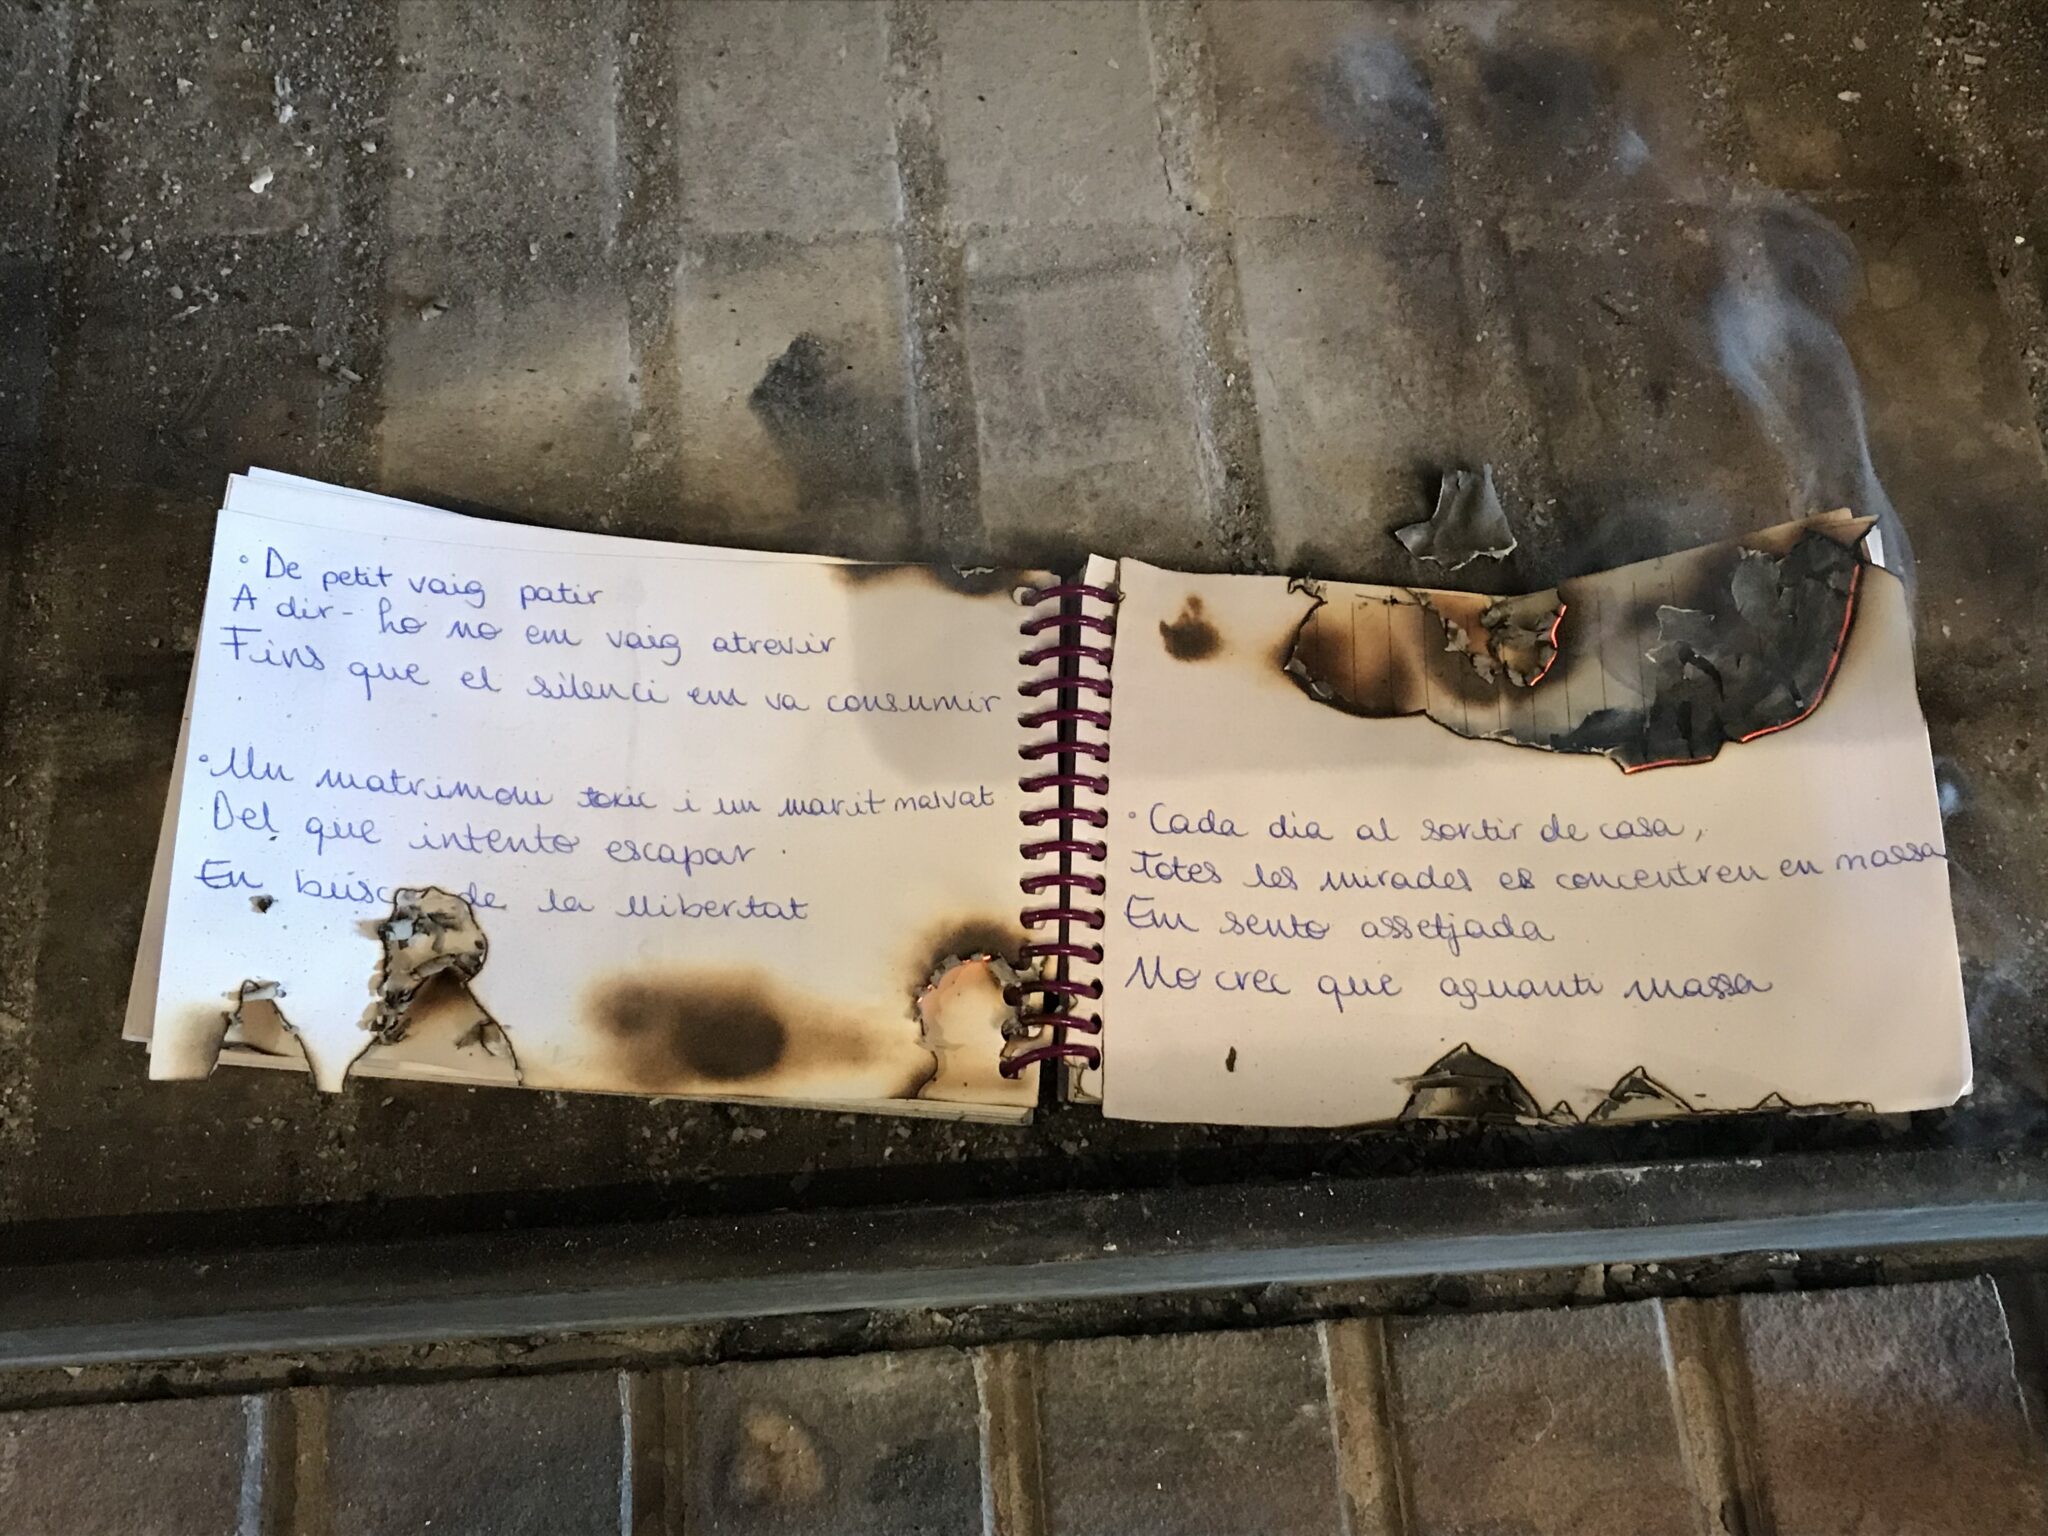 ° De petit vaig patir
A dir-ho no em vaig atrevir
Fins que el silenci em va consumir
° Un matrimoni toxic i un marit malvat
Del que intento escapar
En busca de la llibertat
° Cada dia al sortir de casa,
Totes les mirades es concentren en massa
Em sento assetjada
No crec que aguanti massa